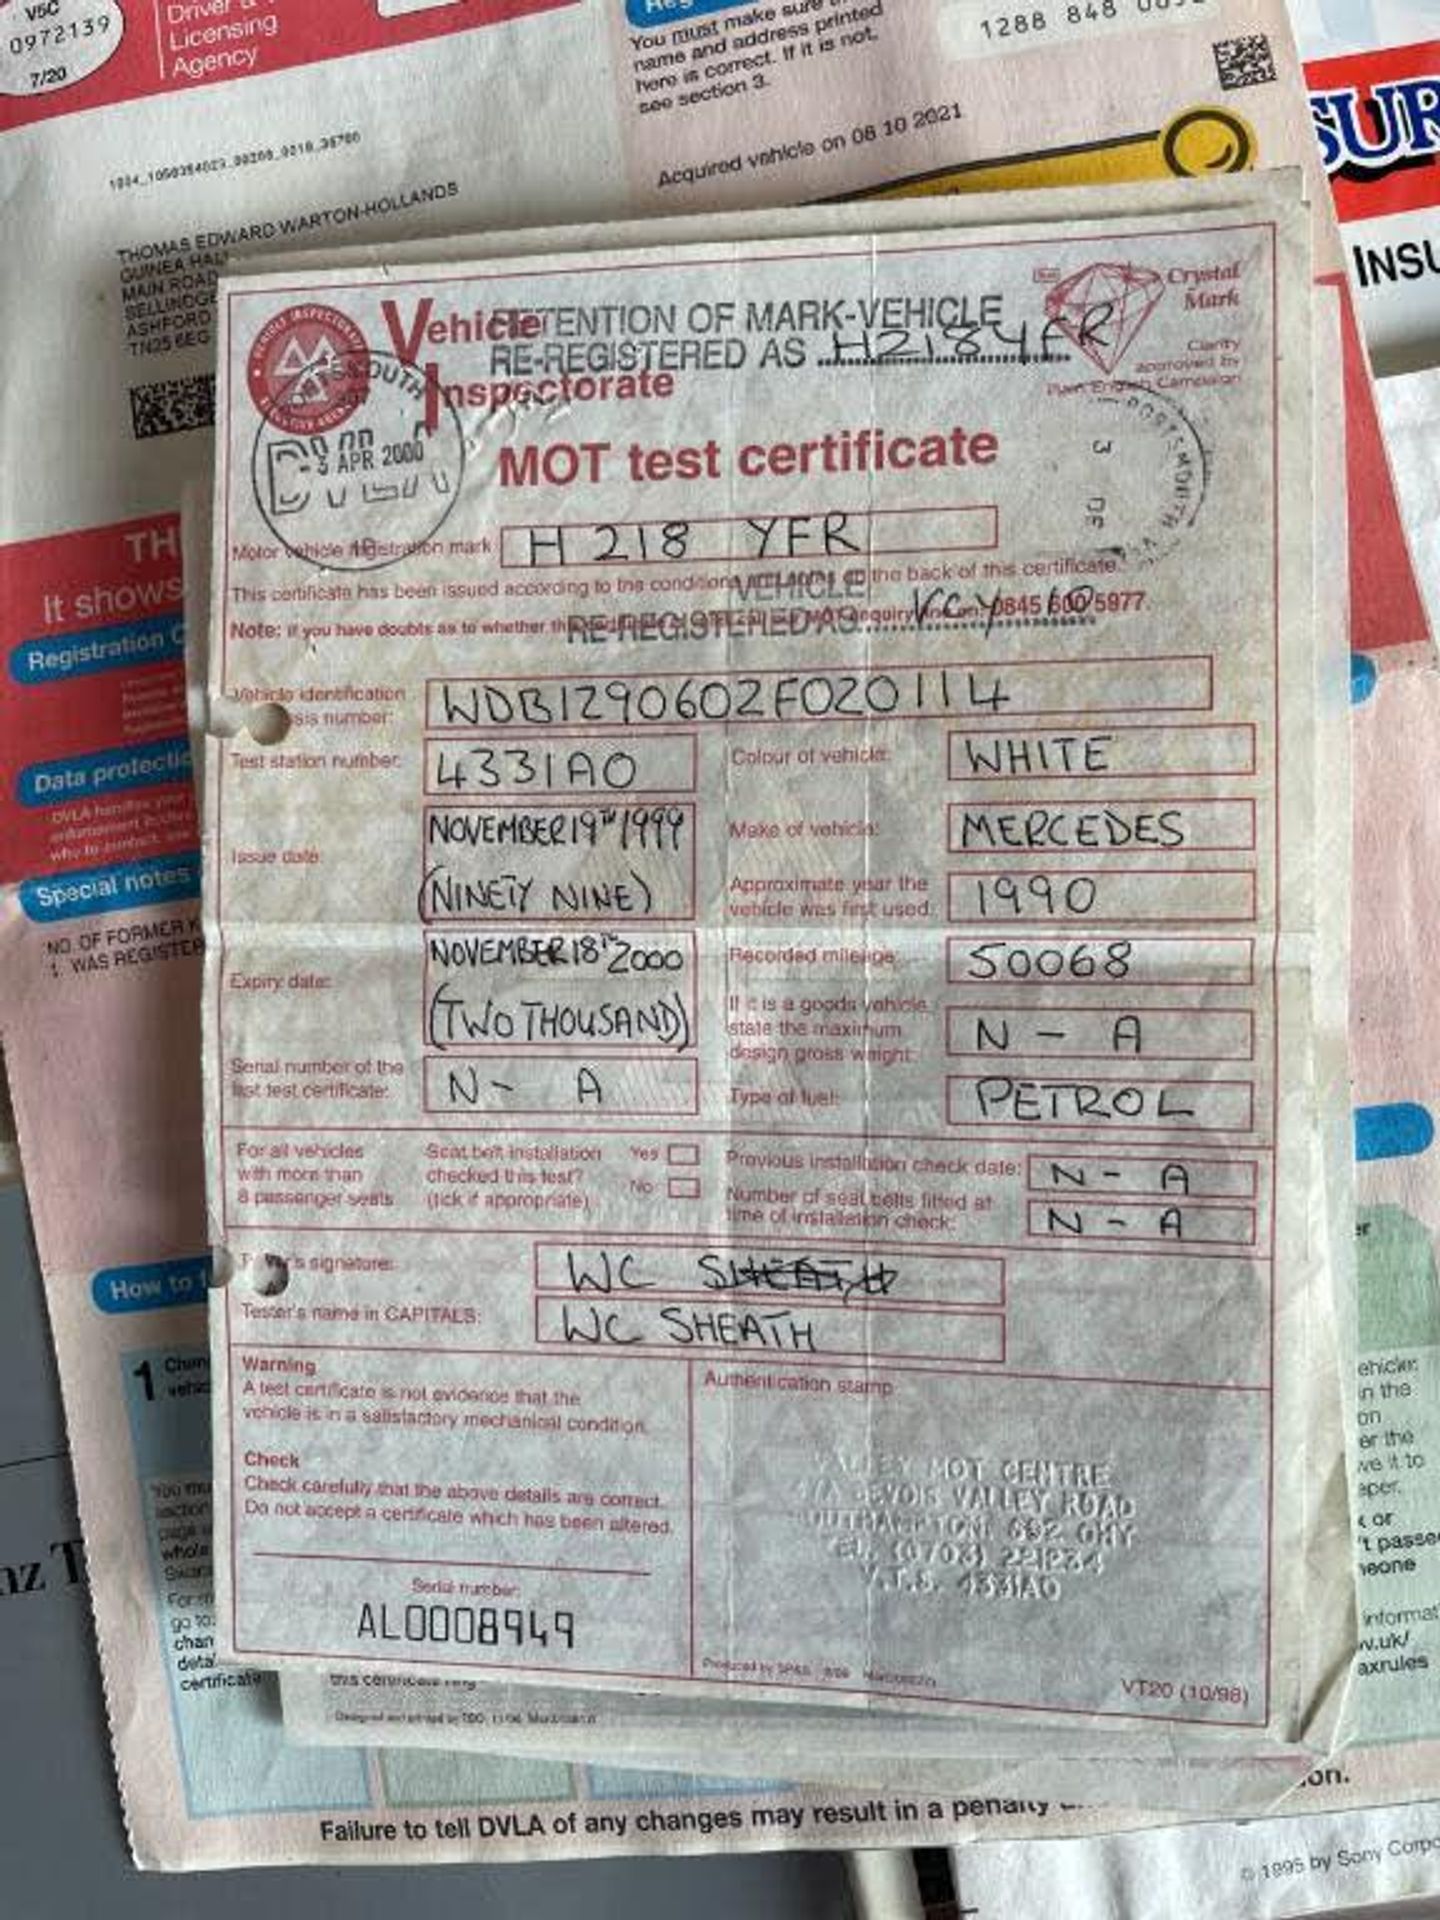 V5C
0972139
7/20
Driver &
Licensing
Agency
You must make sure
name and address printed
here is correct. If it is not,
see section 3.
1288 848
Acquired vehicle on 08 10 2021
SUR
INSU
THOMAS EDWARD WARTON-HOLLANDS
GUINEA HALL
MAIN ROAD
SELLINDGE
ASHFORD
TN25 6EG
Vehicle
Inspectorate
RETENTION OF MARK-VEHICLE
RE-REGISTERED AS H218YFR
Crystal
Mark
Clarity
approved by
Plain English Campaign
PORTSMOUTH
3 APR 2000
PORTSMOUTH
3 DE
MOT test certificate
Motor vehicle registration mark H 218 YFR
This certificate has been issued according to the conditions on the back of this certificate.
VEHICLE
Note: If you have doubts as to whether this enquiry line on: 0845 600 5977.
RE-REGISTERED AS VCY 10
Vehicle identification
chassis number: WDB1290602F020114
Test station number: 4331AO
Colour of vehicle: WHITE
Issue date: NOVEMBER 19TH 1999
(NINETY NINE)
Make of vehicle: MERCEDES
Approximate year the
vehicle was first used: 1990
Expiry date: NOVEMBER 18TH 2000
(TWO THOUSAND)
Recorded mileage: 50068
If it is a goods vehicle,
state the maximum
design gross weight: N - A
Serial number of the
last test certificate: N - A
Type of fuel: PETROL
For all vehicles
with more than
8 passenger seats
Seat belt installation
checked this test?
(tick if appropriate)
Yes
No
Previous installation check date: N - A
Number of seat belts fitted at
time of installation check: N - A
Tester's signature: WC SHEATH
Tester's name in CAPITALS: WC SHEATH
Warning
A test certificate is not evidence that the
vehicle is in a satisfactory mechanical condition.
Check
Check carefully that the above details are correct.
Do not accept a certificate which has been altered.
Serial number:
AL0008949
Authentication stamp
VALLEY MOT CENTRE
VALLEY ROAD
SOUTHAMPTON SO2 0HY
TEL. (0703) 221234
V.T.S. 4331AO
VT20 (10/98)
TH
It shows
Registration
Data protectio
Special notes
NO. OF FORMER K
1. WAS REGISTE
How to
1
chan
detai
certificate
this certificate
Failure to tell DVLA of any changes may result in a penalty
on.
© 1995 by Sony Corpo